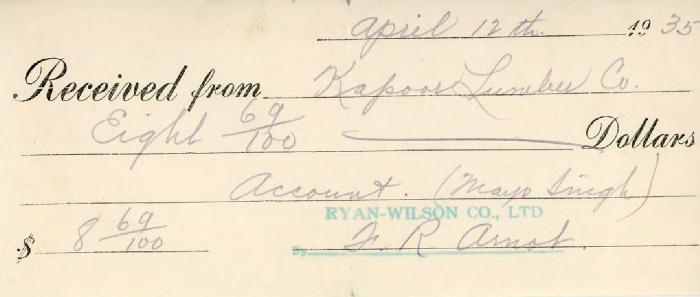 April 12th. 1935
Received from Kapoor Lumber Co.
Eight 69/100 Dollars
Account. (Mayo Singh)
RYAN-WILSON CO., LTD
$ 8 69/100 By F. R. Arnot.